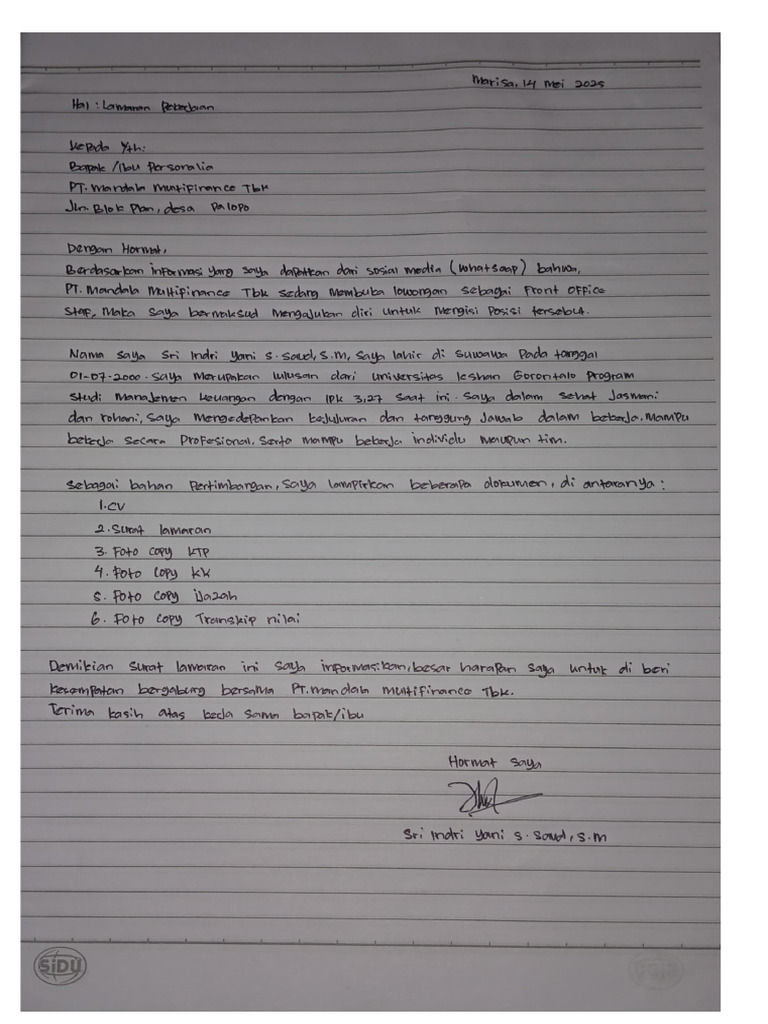 Marisa, 14 mei 2025
Hal : Lamaran Pekerjaan
Kepada Yth:
Bapak /Ibu Personalia
PT. Mandala Multifinance Tbk
Jln. Blok Plan, desa Palopo
Dengan Hormat,
Berdasarkan informasi yang saya dapatkan dari sosial media (whatsaap) bahwa,
PT. Mandala Multifinance Tbk sedang membuka lowongan sebagai Front Office
Stap, Maka saya bermaksud mengajukan diri untuk mengisi posisi tersebut.
Nama saya Sri Indri Yani S. Saud, S.M, saya lahir di suwawa pada tanggal
01-07-2000. saya merupakan lulusan dari universitas Ichsan Gorontalo program
studi manajemen keuangan dengan IPK 3,27 saat ini. saya dalam sehat Jasmani
dan rohani, saya mengedepankan kejujuran dan tanggung Jawab dalam bekerja. Mampu
bekerja secara Profesional. Serta mampu bekerja individu maupun tim.
Sebagai bahan Pertimbangan, saya lampirkan beberapa dokumen, di antaranya :
1. CV
2. Surat lamaran
3. Foto copy KTP
4. Foto copy KK
5. Foto copy ijazah
6. Foto copy Transkip nilai
Demikian surat lamaran ini saya informasikan, besar harapan saya untuk di beri
kesempatan bergabung bersama PT. mandala multifinance Tbk.
Terima kasih atas kerja sama bapak/ibu
Hormat saya
Sri Indri Yani S. Saud, S.M
SiDU